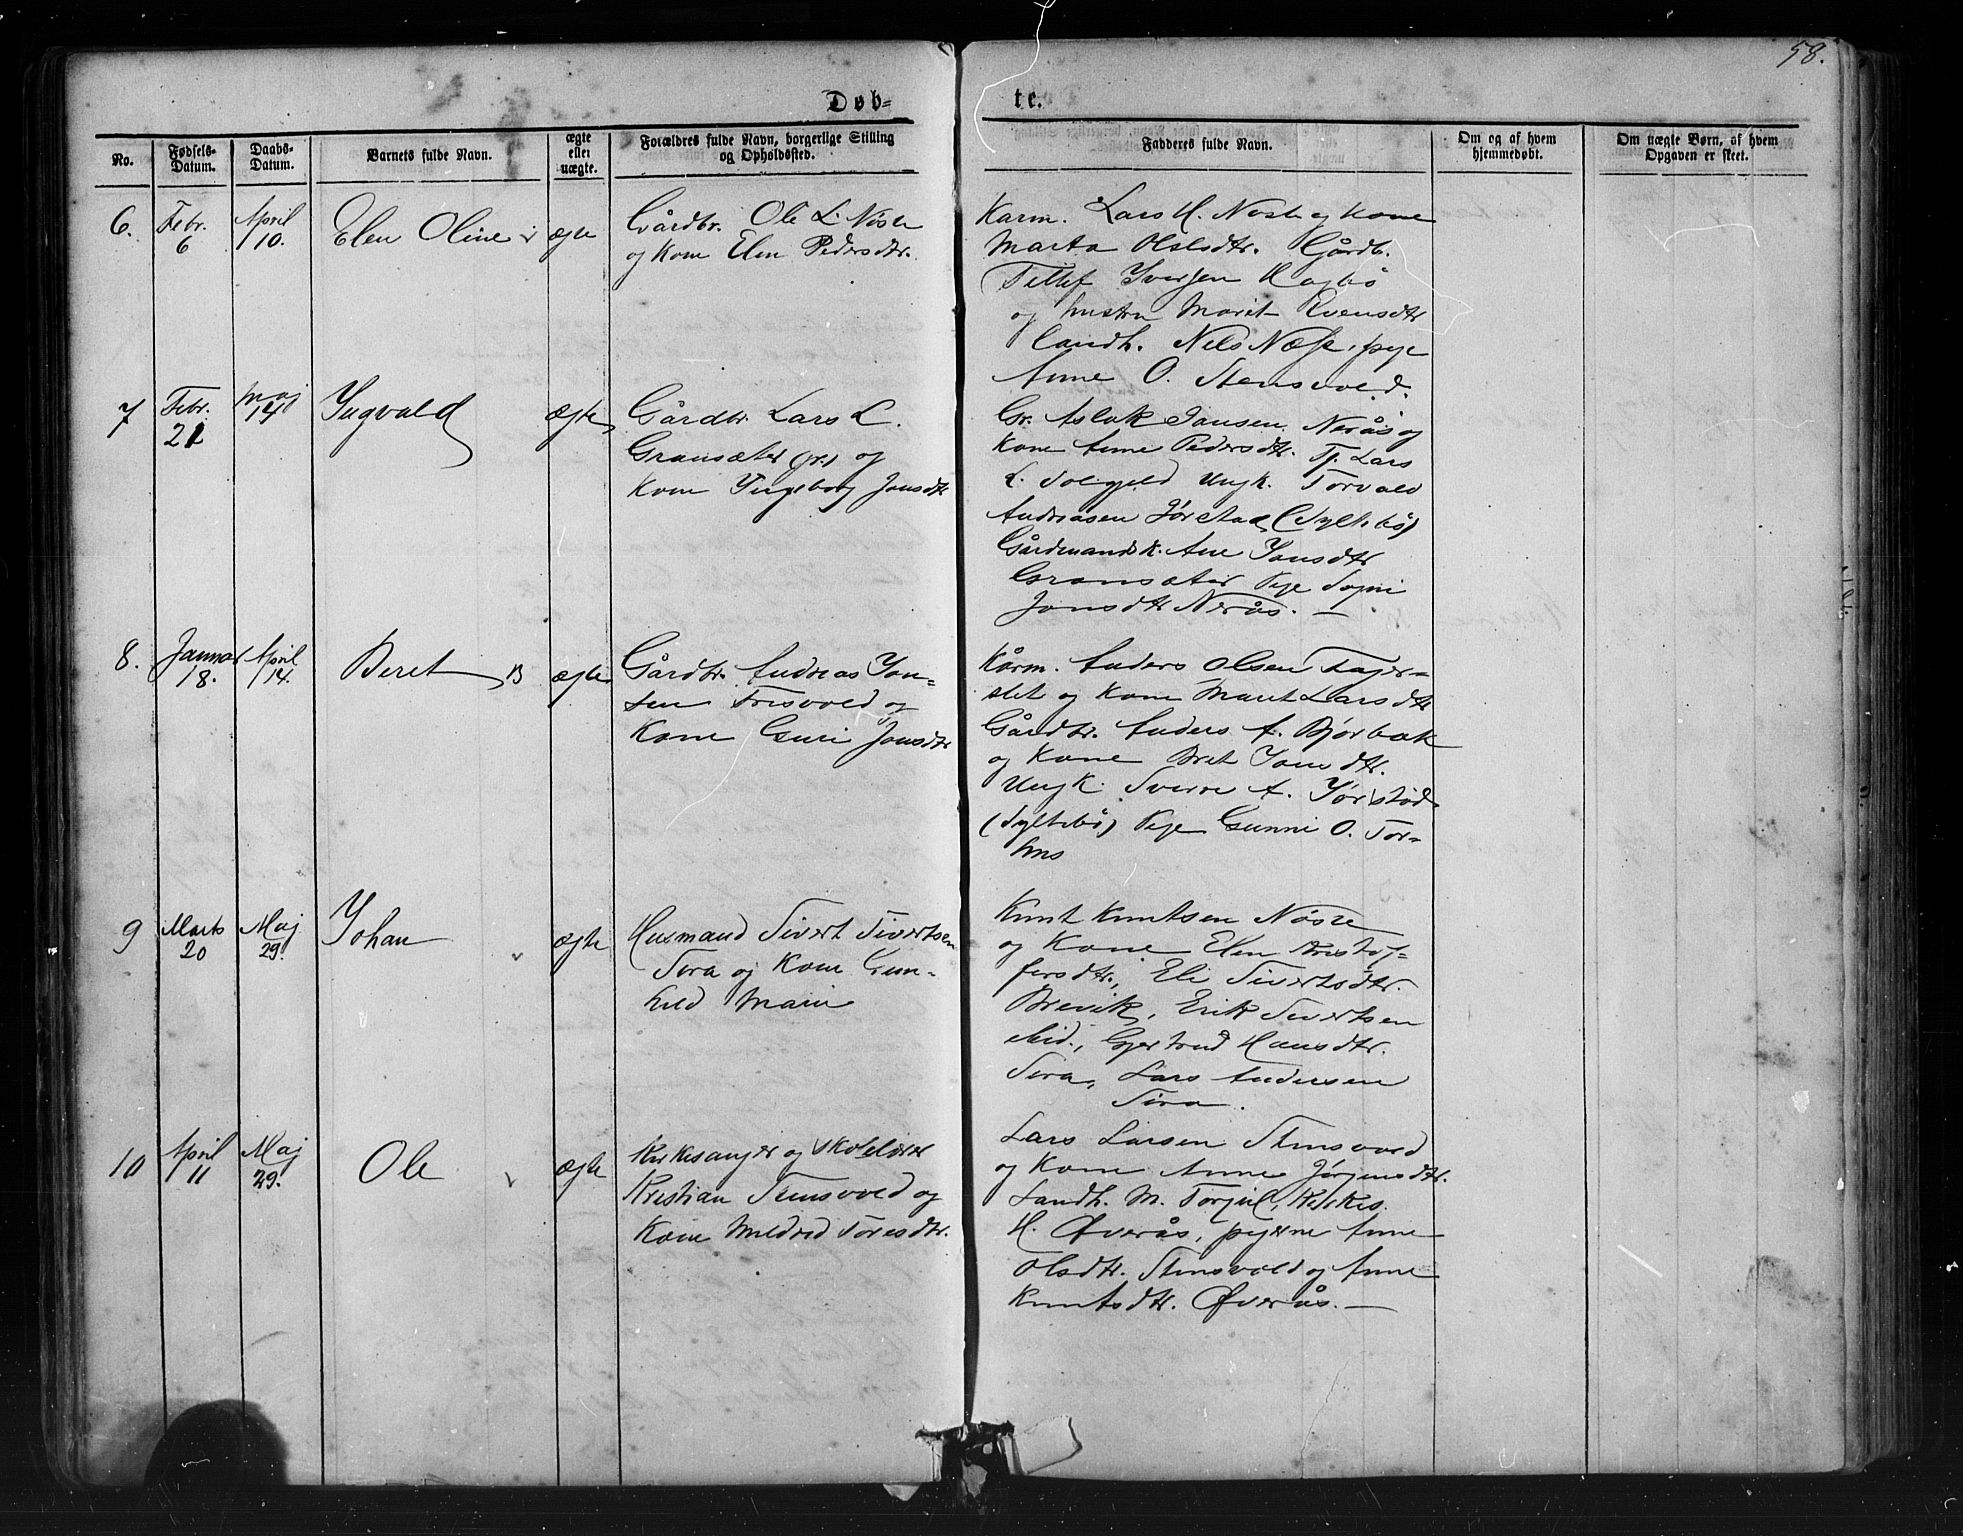 58.
Døb-
te.
No.
Fødsels-
Datum.
Daabs-
Datum.
Barnets fulde Navn.
ægte
eller
uægte.
Forældres fulde Navn, borgerlige Stilling
og Opholdssted.
Faddernes fulde Navn.
Om og af hvem
hjemmedøbt.
Om uægte Børn, af hvem
Opgaven er skeet.
6.
Febr.
6
April
10.
Elen Oline
ægte
Gårdbr. Ole L. Nöste
og Kone Elen Pedersdtr.
Karm. Lars H. Nöste og Kone
Marta Olsdtr. Gårdb.
Iversen
og hustru Marit
Landh. Nels pige
Anne O. Stensvold.
7
Febr.
21
Maj
14
Ingvald
ægte
Gårdbr. Lars L.
Gransæter og
Kone Ingeborg Jonsdtr
Gr. Aslak Jansen Nerås og
Kone Anne Pedersdtr. Tj. Lars
L. Ungk. Torvald
Andreasen Jörstad (Syltebö)
Gårdmandsk. Ane Jonsdtr
Gransæter Pige
Jonsdtr Nerås. —
8.
Januar
18.
April
14.
Beret
ægte
Gårdbr. Andreas Jon-
sen Frisvold og
Kone Guri Jonsdtr
Kårm. Anders Olsen Fager-
slet og Kone Marit Larsdtr
Gårdbr. Anders A. Björbæk
og Kone Bret Jonsdtr.
Ungk. Sverre A. Jörstad
(Syltebö) Pige Gunni O. Tor-
hus
9
Marts
20
Maj
29.
Johan
ægte
Husmand Sivert Sivertsen
Sira og Kone Gun-
hild Marie
Knut Knutsen Nöste
og Kone Elen Kristof-
fersdtr., Eli Sivertsdtr.
Brevik, Erik Sivertsen
ibid., Gjertrud Hansdtr.
Sira, Lars Andersen
Sira.
10
April
11
Maj
29.
Ole
ægte
Kirkesanger og skolelærer
Kristian Stensvold og
Kone Mildrid Toresdtr.
Lars Larsen Stensvold
og Kone Anne Jörgensdtr.
Landh. M. Torjul, Kirkes.
H. Øverås, pigerne Anne
Olsdtr. Stensvold og Anne
Knutsdtr. Øverås. —